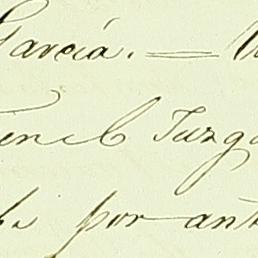 García. =
en el Juzg
por ant